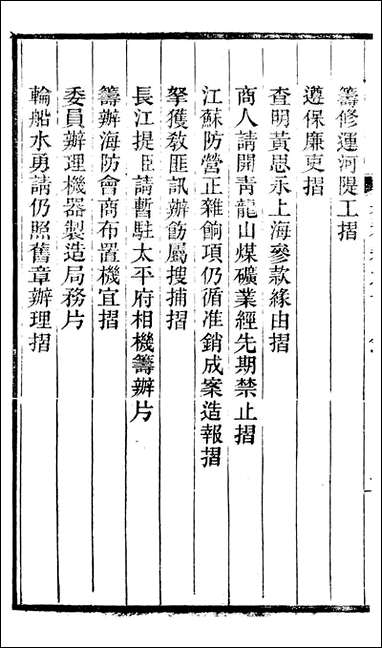 籌修運河隄工摺
遵保廉吏摺
查明黃思永上海參款緣由摺
商人請開靑龍山煤礦業經先期禁止摺
江蘇防營正雜餉項仍循准銷成案造報摺
拏獲敎匪訊辦飭屬搜捕摺
長江提臣請暫駐太平府相機籌辦片
籌辦海防會商布置機宜摺
委員辦理機器製造局務片
輪船水勇請仍照舊章辦理摺